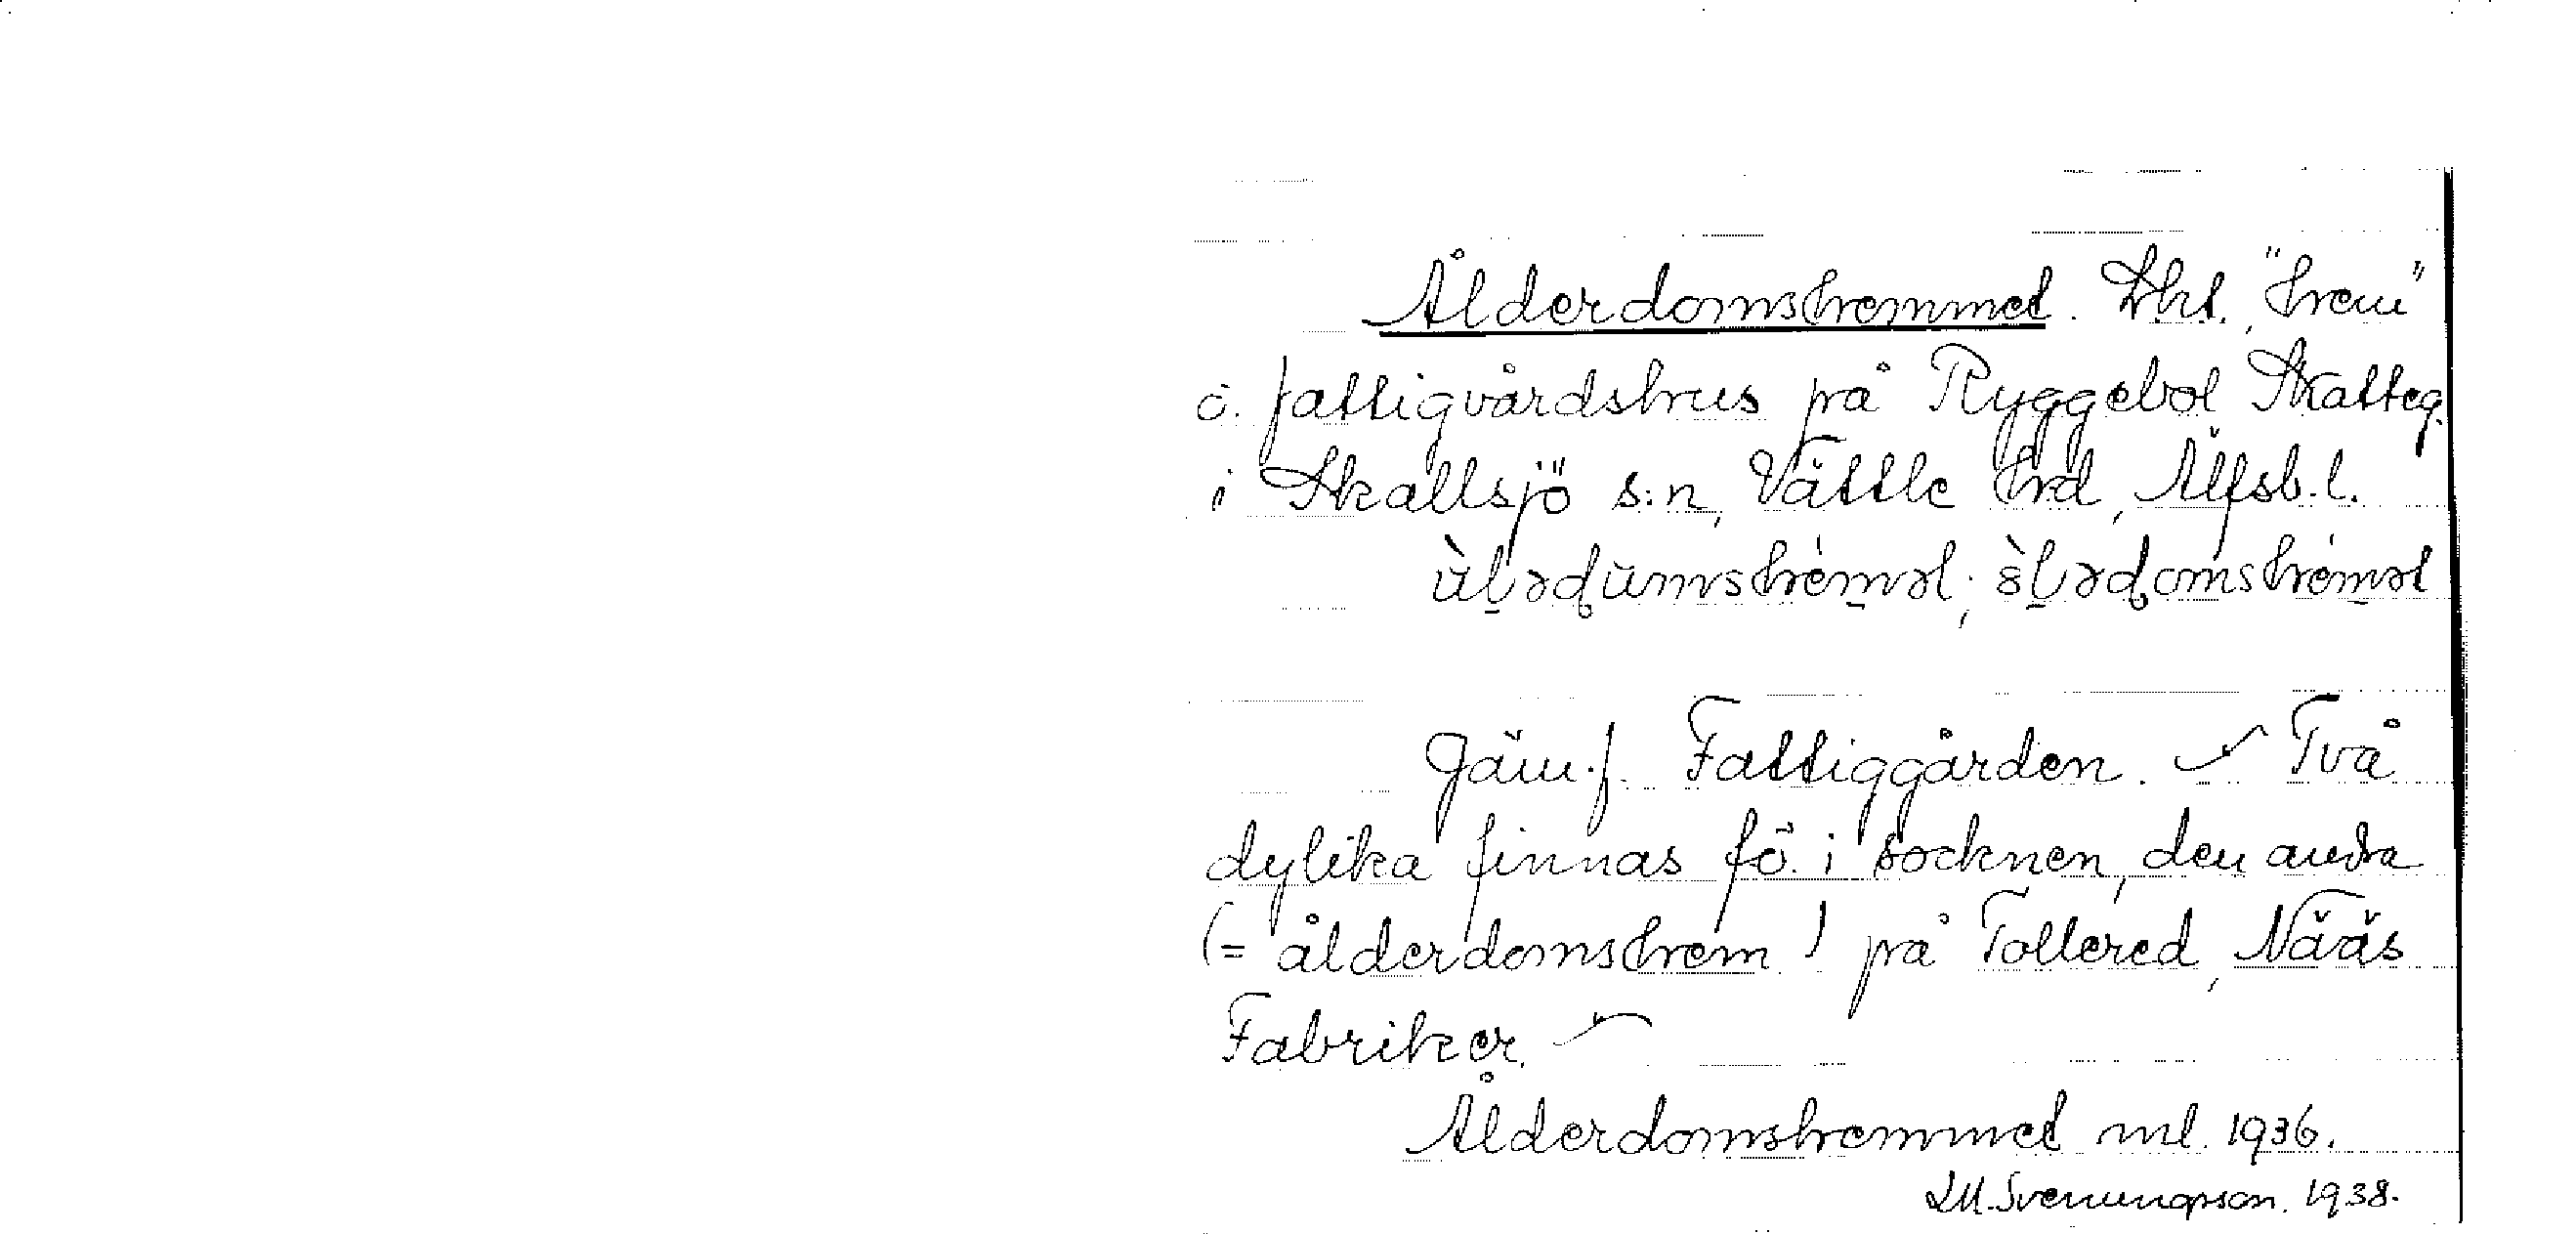 Ålderdomshemmet. Lht., "hem"
o. fattigvårdshus på Ryggebol Skatteg.
i Skallsjö s:n, Vättle hd, Älfsb.l.
Jämf. Fattiggården. Två
dylika finnas fö. i socknen, den andra
(= ålderdomshem) på Tollered, Nääs
Fabriker.
Ålderdomshemmet ml. 1936.
LM. Svenungsson. 1938.